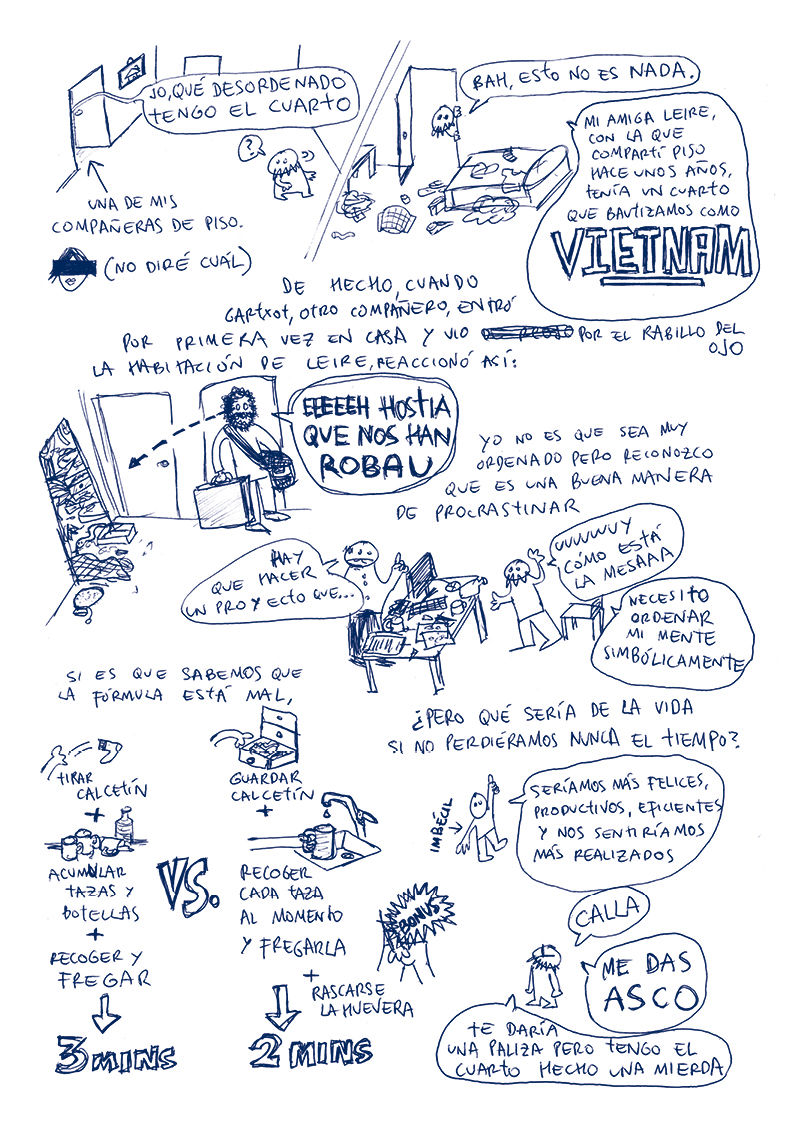 JO, QUÉ DESORDENADO
TENGO EL CUARTO
?
UNA DE MIS
COMPAÑERAS DE PISO.
(NO DIRÉ CUÁL)
BAH, ESTO NO ES NADA.
MI AMIGA LEIRE,
CON LA QUE
COMPARTÍ PISO
HACE UNOS AÑOS,
TENÍA UN CUARTO
QUE BAUTIZAMOS COMO
VIETNAM
DE HECHO, CUANDO
GARTXOT, OTRO COMPAÑERO, ENTRÓ
POR PRIMERA VEZ EN CASA Y VIO POR EL RABILLO DEL
OJO
LA HABITACIÓN DE LEIRE, REACCIONÓ ASÍ:
EEEEEH HOSTIA
QUE NOS HAN
ROBAU
YO NO ES QUE SEA MUY
ORDENADO PERO RECONOZCO
QUE ES UNA BUENA MANERA
DE PROCRASTINAR
HAY
QUE HACER
UN PROYECTO QUE...
UUUUUUY
CÓMO ESTÁ
LA MESAAAA
NECESITO
ORDENAR
MI MENTE
SIMBÓLICAMENTE
SI ES QUE SABEMOS QUE
LA FÓRMULA ESTÁ MAL,
TIRAR
CALCETÍN
+
ACUMULAR
TAZAS Y
BOTELLAS
+
RECOGER Y
FREGAR
3 MINS
VS.
GUARDAR
CALCETÍN
+
RECOGER
CADA TAZA
AL MOMENTO
Y FREGARLA
+
BONUS
RASCARSE
LA HUEVERA
2 MINS
¿PERO QUÉ SERÍA DE LA VIDA
SI NO PERDIÉRAMOS NUNCA EL TIEMPO?
IMBÉCIL
SERÍAMOS MÁS FELICES,
PRODUCTIVOS, EFICIENTES
Y NOS SENTIRÍAMOS
MÁS REALIZADOS
CALLA
ME DAS
ASCO
TE DARÍA
UNA PALIZA PERO TENGO EL
CUARTO HECHO UNA MIERDA